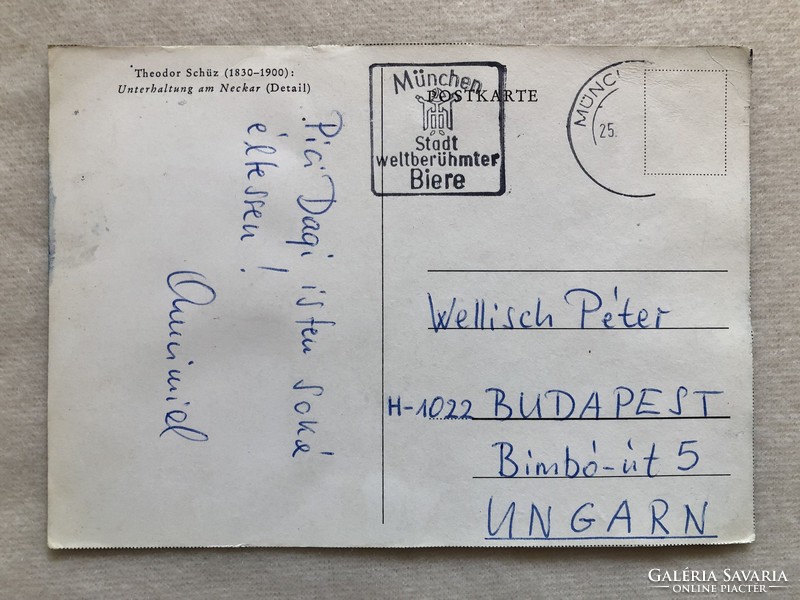 Theodor Schüz (1830-1900):
Unterhaltung am Neckar (Detail)
Pici Dagi isten soká
éltessen!
München
Stadt
weltberühmter
Biere
POSTKARTE
MÜNC
25.
Wellisch Péter
H-1022 BUDAPEST
Bimbó-út 5
UNGARN
GALÉRIA SAVARIA
ONLINE PIACTÉR